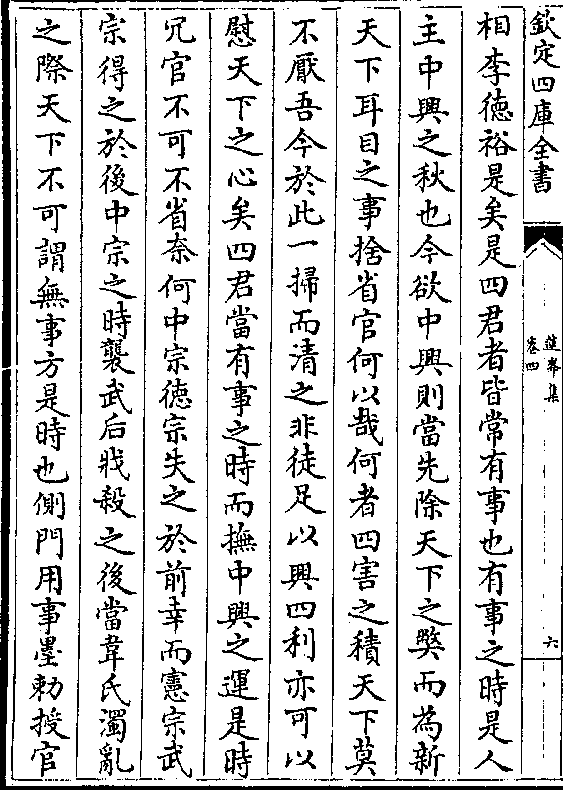 欽定四庫全書
蓮峯集
卷四
六
相李徳裕是矣是四君者皆常有事也有事之時是人
主中興之秋也今欲中興則當先除天下之弊而為新
天下耳目之事捨省官何以哉何者四害之積天下莫
不厭吾今於此一掃而清之非徒足以興四利亦可以
慰天下之心矣四君當有事之時而撫中興之運是時
冗官不可不省奈何中宗徳宗失之於前幸而憲宗武
宗得之於後中宗之時襲武后戕殺之後當韋氏濁亂
之際天下不可謂無事方是時也側門用事墨勅授官